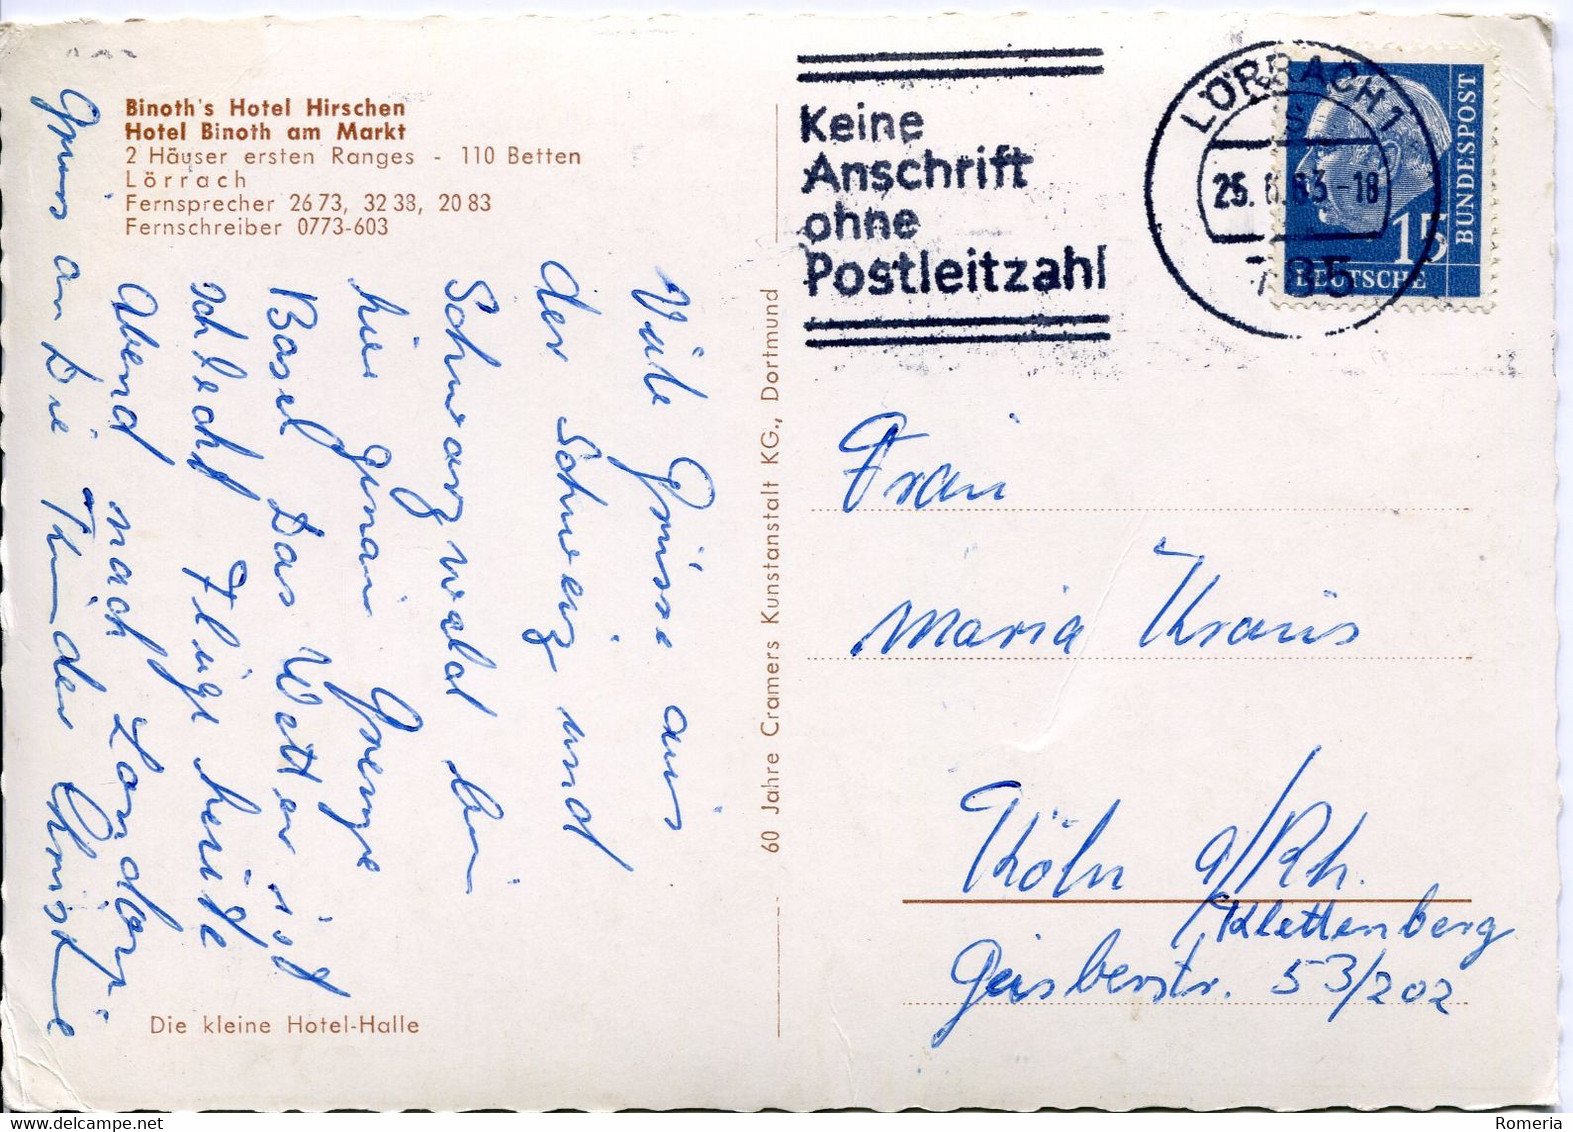 Binoth's Hotel Hirschen
Hotel Binoth am Markt
2 Häuser ersten Ranges - 110 Betten
Lörrach
Fernsprecher 26 73, 32 38, 20 83
Fernschreiber 0773-603
Viele Grüsse aus
der Schweiz und
Schwarzwald bin
hier genau Grenze
Basel Das Wetter ist
schlecht Fliege heute
Abend nach
Gruss an Die Kinder Christine
Die kleine Hotel-Halle
60 Jahre Cramers Kunstanstalt KG., Dortmund
Keine
Anschrift
ohne
Postleitzahl
LÖRRACH 1
25. 6. 63 - 18
785
15
BUNDESPOST
DEUTSCHE
Frau
Maria Kraus
Köln a/Rh.
Klettenberg
Geisbergstr. 53/202
© Romeria